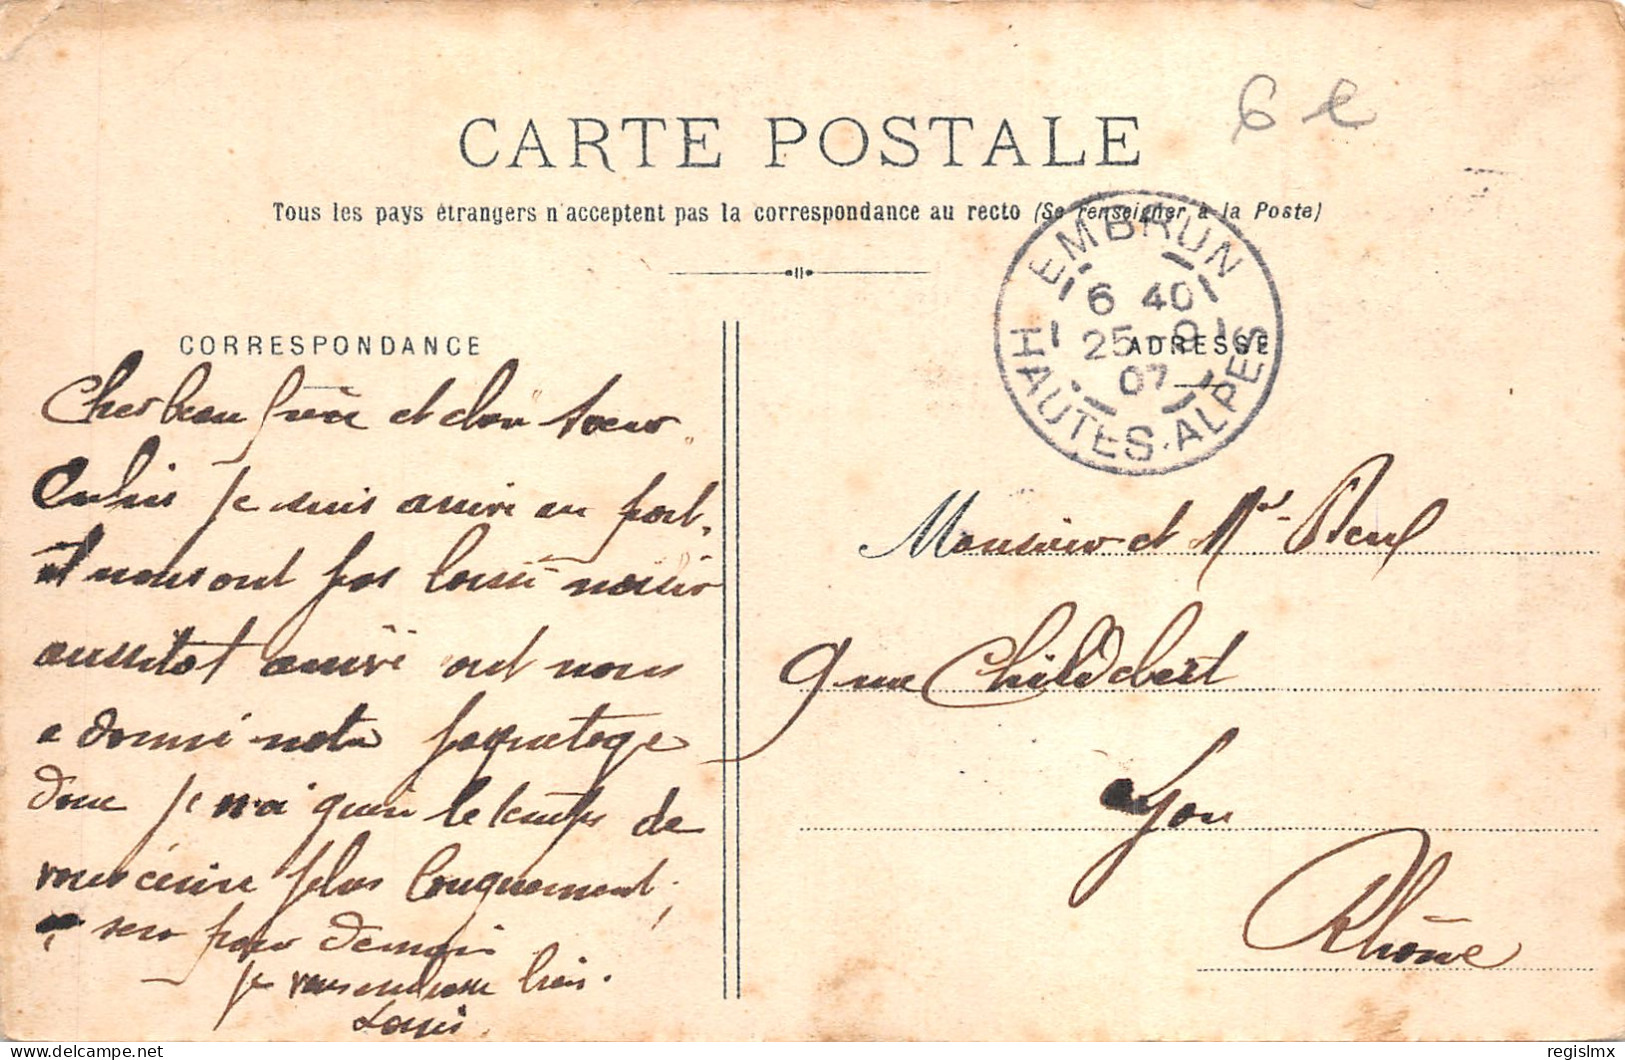 6 €
CARTE POSTALE
Tous les pays étrangers n'acceptent pas la correspondance au recto (Se renseigner à la Poste)
EMBRUN
6 40
25 -9
07
HAUTES-ALPES
CORRESPONDANCE
ADRESSE
Cher beau frère et chère soeur
Enfin je suis arrivé au fort,
il nous ont pas laissé moisir
aussitot arrivé ont nous
a donné notre paquetage
donc je n'ai guère le temps de
vous écrire plus longuement,
sera pour demain
je vous embrasse bien.
Louis
Monsieur et Mme
9 rue Childebert
Lyon
Rhône
delcampe.net
regislmx